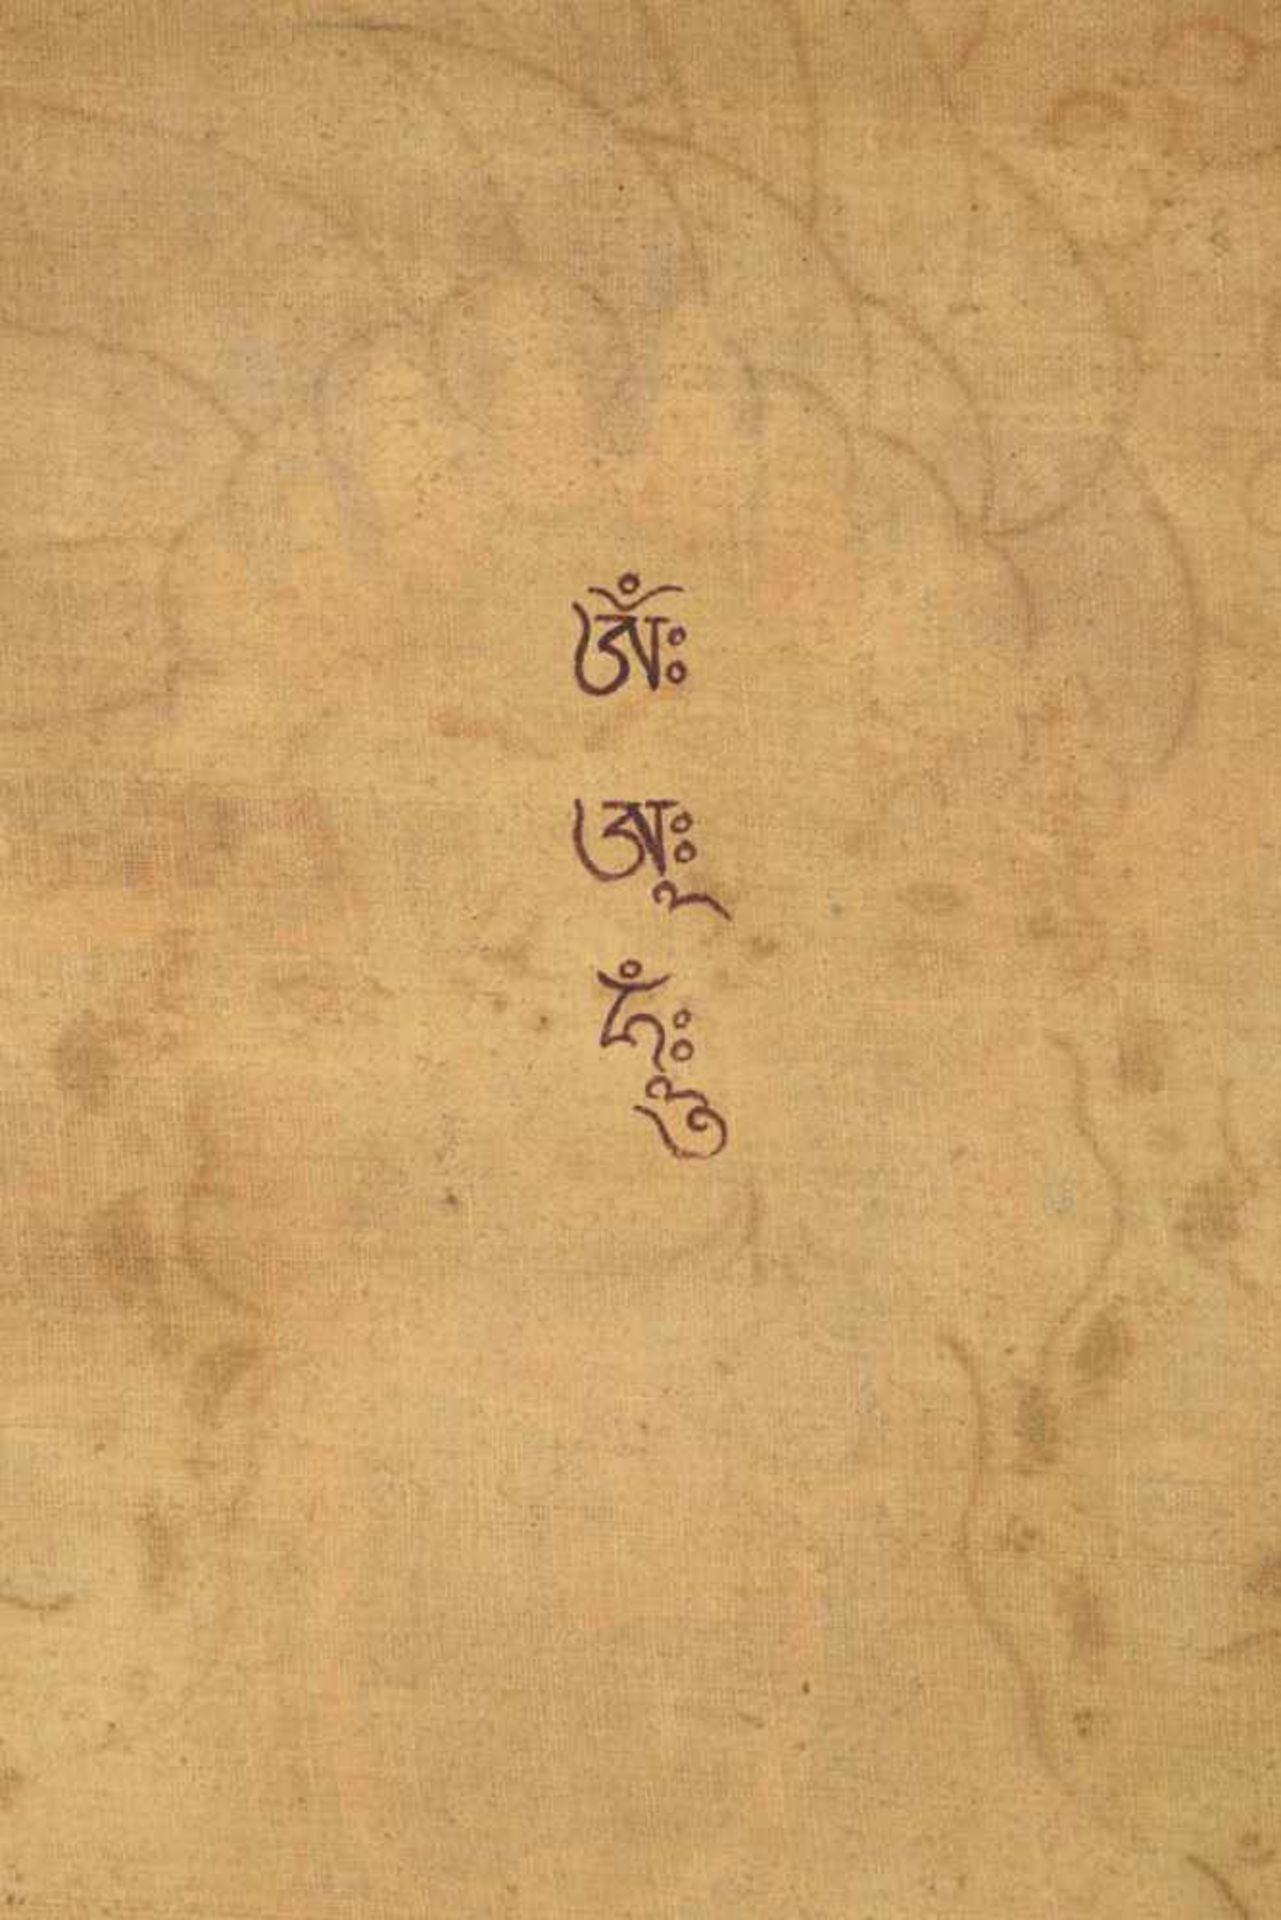 ཨོཾཿ
ཨཱཿ
ཧཱུཾཿ